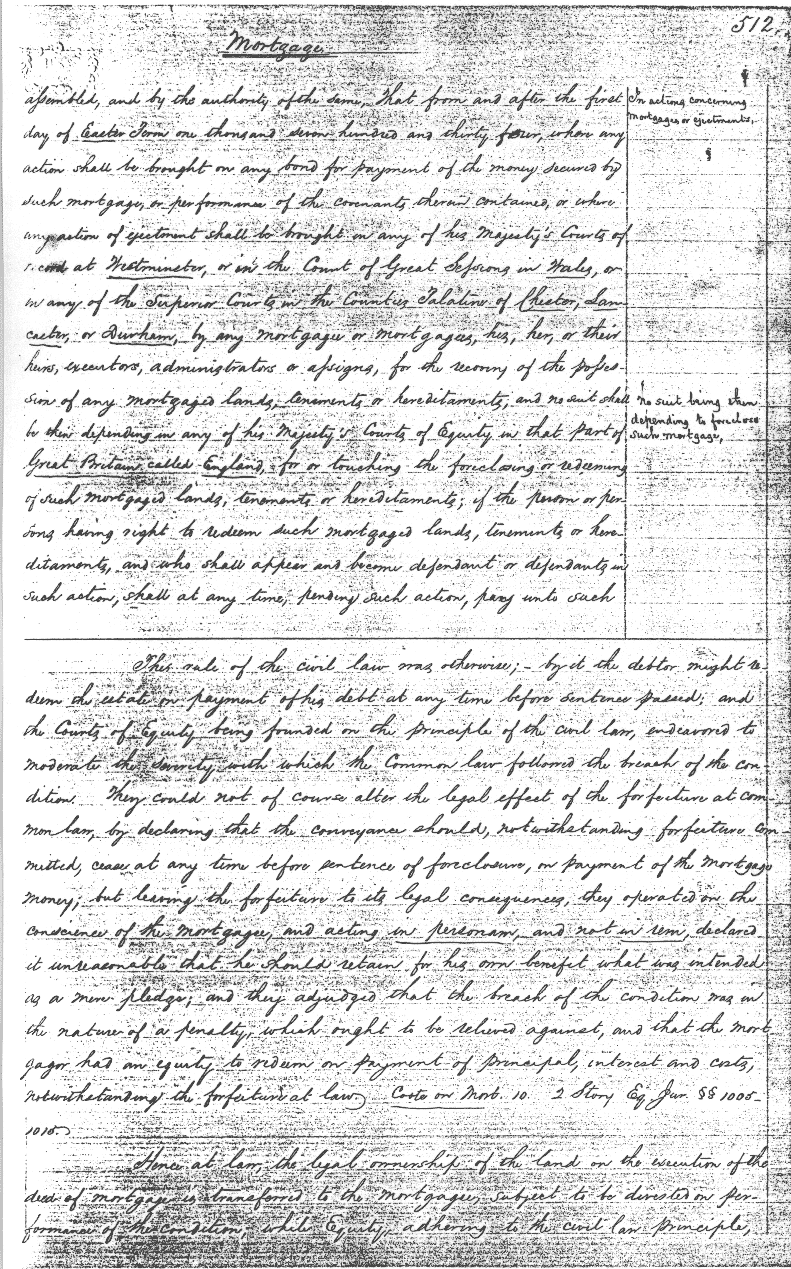 512.
Mortgage
assembled, and by the authority of the same, That from and after the first
day of Easter Term one thousand seven hundred and thirty four, where any
action shall be brought on any bond for payment of the money secured by
such mortgage, or performance of the covenants therein contained, or where
any action of ejectment shall be brought in any of his Majesty's Courts of
record at Westminster, or in the Court of Great Sessions in Wales, or
in any of the Superior Courts in the Counties Palatine of Chester, Lan-
caster, or Durham, by any mortgagee or mortgagees, his, her, or their
heirs, executors, administrators or assigns, for the recoring of the posses-
sion of any mortgaged lands, tenements or hereditaments, and no suit shall
be then depending in any of his Majesty's Courts of Equity in that part of
Great Britain called England, for or touching the foreclosing or redeeming
of such mortgaged lands, tenements or hereditaments; if the person or per-
sons having right to redeem such mortgaged lands, tenements or here-
ditaments, and who shall appear and become defendant or defendants in
such action, shall at any time, pending such action, pay unto such
In actions concerning
mortgages or ejectments,
no suit being then
depending to foreclose
such mortgage,
This rule of the civil law was otherwise; - by it the debtor might re-
deem the estate on payment of his debt at any time before sentence passed; and
the Courts of Equity being founded on the principle of the civil law, endeavored to
moderate the severity with which the Common law followed the breach of the con-
dition. They could not of course alter the legal effect of the forfeiture at com-
mon law, by declaring that the conveyance should, notwithstanding forfeiture com-
mitted, cease at any time before sentence of foreclosure, on payment of the mortgage
money; but leaving the forfeiture to its legal consequences, they operated on the
conscience of the mortgagee, and acting in personam, and not in rem, declared
it unreasonable that he should retain for his own benefit what was intended
as a mere pledge; and they adjudged that the breach of the condition was in
the nature of a penalty, which ought to be relieved against, and that the mort
gagor had an equity to redeem on payment of principal, interest and costs,
notwithstanding the forfeiture at law) Coote on Mort. 10. 2 Story Eq. Jur. §§ 1005-
1015)
Hence at law, the legal ownership of the land on the execution of the
deed of mortgage is transferred to the mortgagee, subject to be divested on per-
formance of the condition; while Equity, adhering to the civil law principle,